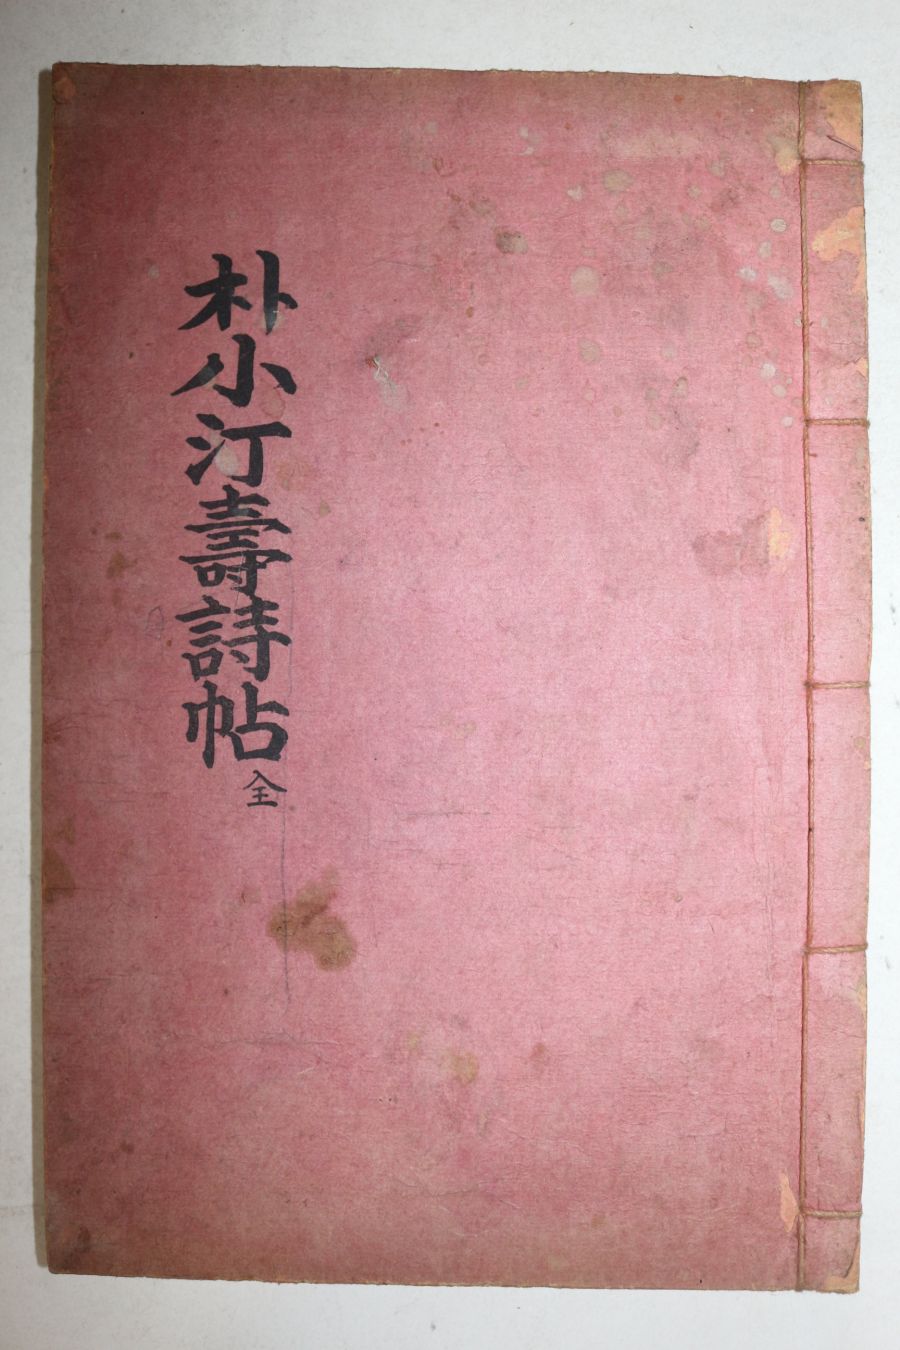 朴小汀壽詩帖 全